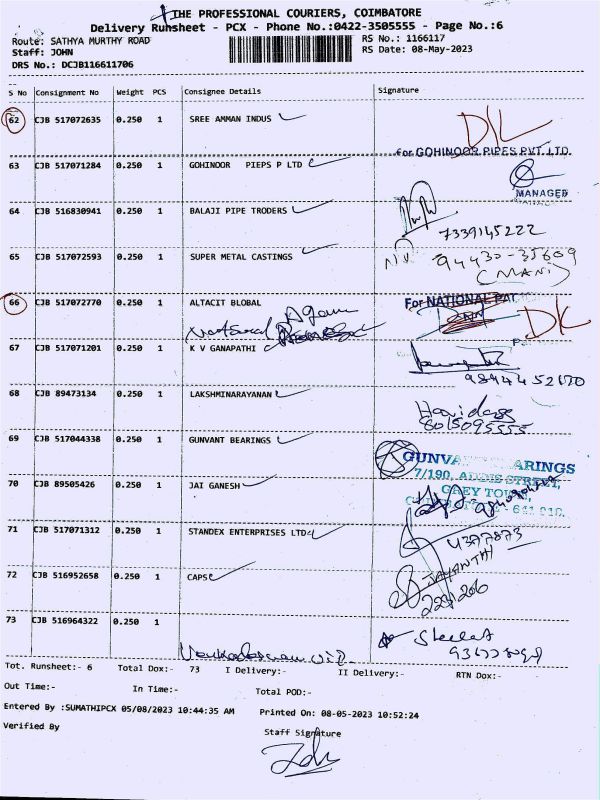 THE PROFESSIONAL COURIERS, COIMBATORE
Delivery Runsheet - PCX - Phone No.:0422-3505555 - Page No.:6
Route: SATHYA MURTHY ROAD
RS No.: 1166117
Staff: JOHN
RS Date: 08-May-2023
DRS No.: DCJB116611706
S No Consignment No Weight PCS Consignee Details Signature
62 CJB 517072635 0.250 1 SREE AMMAN INDUS DK
For GOHINOOR PIPES PVT. LTD.
63 CJB 517071284 0.250 1 GOHINOOR PIEPS P LTD
MANAGER
64 CJB 516830941 0.250 1 BALAJI PIPE TRODERS
7339145222
65 CJB 517072593 0.250 1 SUPER METAL CASTINGS
94430-35609
(MANI)
66 CJB 517072770 0.250 1 ALTACIT BLOBAL
For NATIONAL
DK
67 CJB 517071201 0.250 1 K V GANAPATHI
68 CJB 89473134 0.250 1 LAKSHMINARAYANAN
Haridass
8015095555
69 CJB 517044338 0.250 1 GUNVANT BEARINGS
GUNVANT BEARINGS
7/190, ADDIS STREET,
GREY TOWN,
70 CJB 89505426 0.250 1 JAI GANESH
71 CJB 517071312 0.250 1 STANDEX ENTERPRISES LTD
4377873
JAYANTHI
72 CJB 516952658 0.250 1 CAPS
73 CJB 516964322 0.250 1
Tot. Runsheet:- 6 Total Dox:- 73 I Delivery:- II Delivery:- RTN Dox:-
Out Time:- In Time:- Total POD:-
Entered By :SUMATHIPCX 05/08/2023 10:44:35 AM Printed On: 08-05-2023 10:52:24
Verified By
Staff Signature